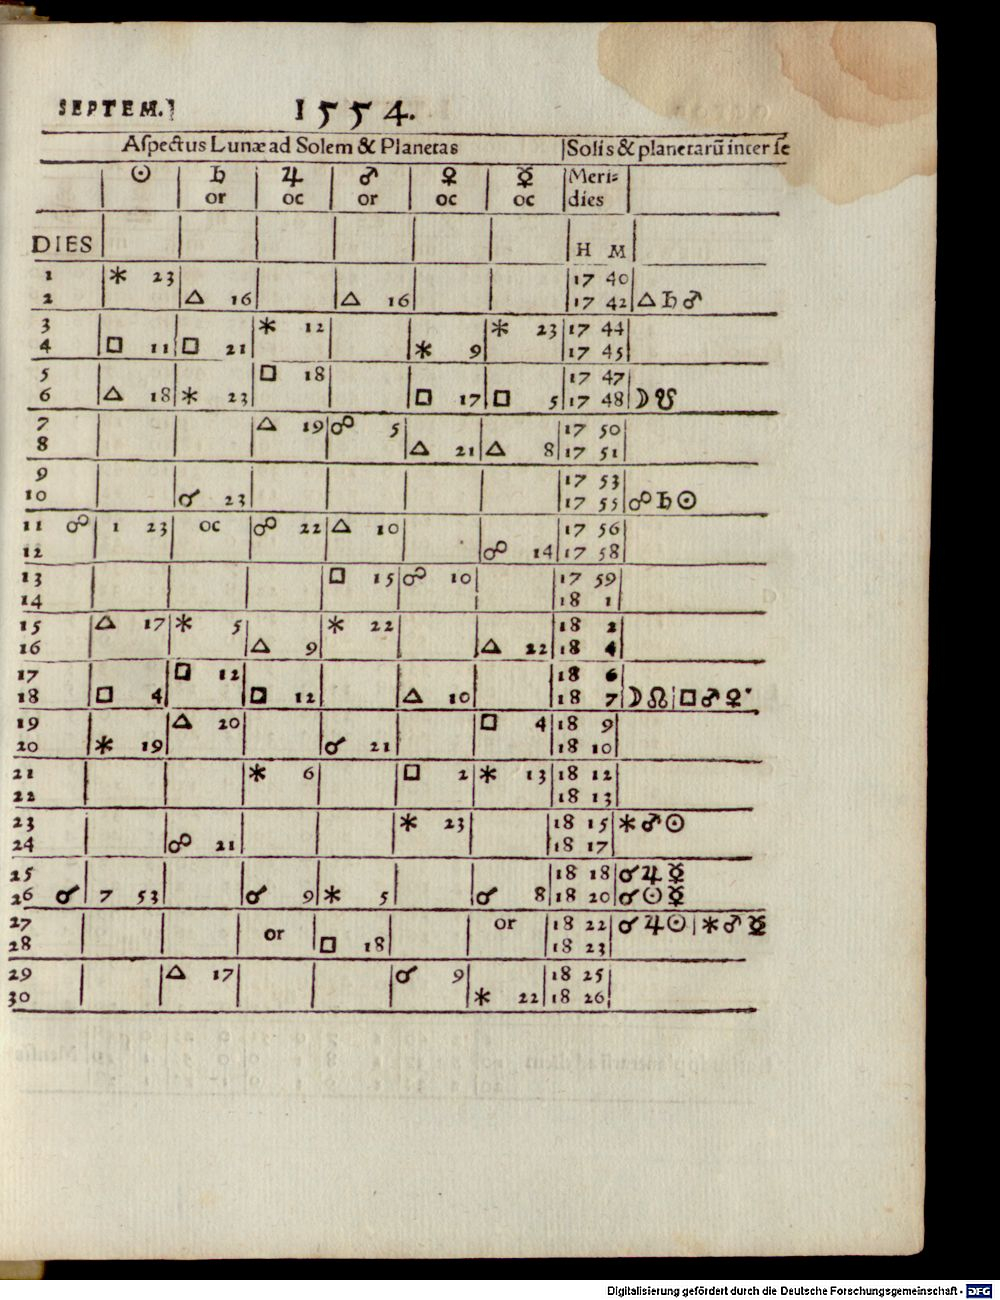 SEPTEM. 1554.
Aspectus Lunæ ad Solem & Planetas | Solis & planetarū inter se
☉ ♄ ♃ ♂ ♀ ☿ Meri-
or oc or oc oc dies
DIES H M
1 ⚹ 23 17 40
2 △ 16 △ 16 17 42 △ ♄ ♂
3 ⚹ 12 ⚹ 23 17 44
4 □ 11 □ 21 ⚹ 9 17 45
5 □ 18 17 47
6 △ 18 ⚹ 23 □ 17 □ 5 17 48 ☽ ☋
7 △ 19 ☍ 5 17 50
8 △ 21 △ 8 17 51
9 17 53
10 ☌ 23 17 55 ☍ ♄ ☉
11 ☍ 1 23 oc ☍ 22 △ 10 17 56
12 ☍ 14 17 58
13 □ 15 ☍ 10 17 59
14 18 1
15 △ 17 ⚹ 5 ⚹ 22 18 2
16 △ 9 △ 22 18 4
17 □ 12 18 6
18 □ 4 □ 12 △ 10 18 7 ☽ ☊ | □ ♂ ♀
19 △ 20 □ 4 18 9
20 ⚹ 19 ☌ 21 18 10
21 ⚹ 6 □ 2 ⚹ 13 18 12
22 18 13
23 ⚹ 23 18 15 ⚹ ♂ ☉
24 ☍ 21 18 17
25 18 18 ☌ ♃ ☿
26 ☌ 7 53 ☌ 9 ⚹ 5 ☌ 8 18 20 ☌ ☉ ☿
27 or or 18 22 ☌ ♃ ☉ | ⚹ ♂ ☿
28 □ 18 18 23
29 △ 17 ☌ 9 18 25
30 ⚹ 22 18 26
Digitalisierung gefördert durch die Deutsche Forschungsgemeinschaft - DFG